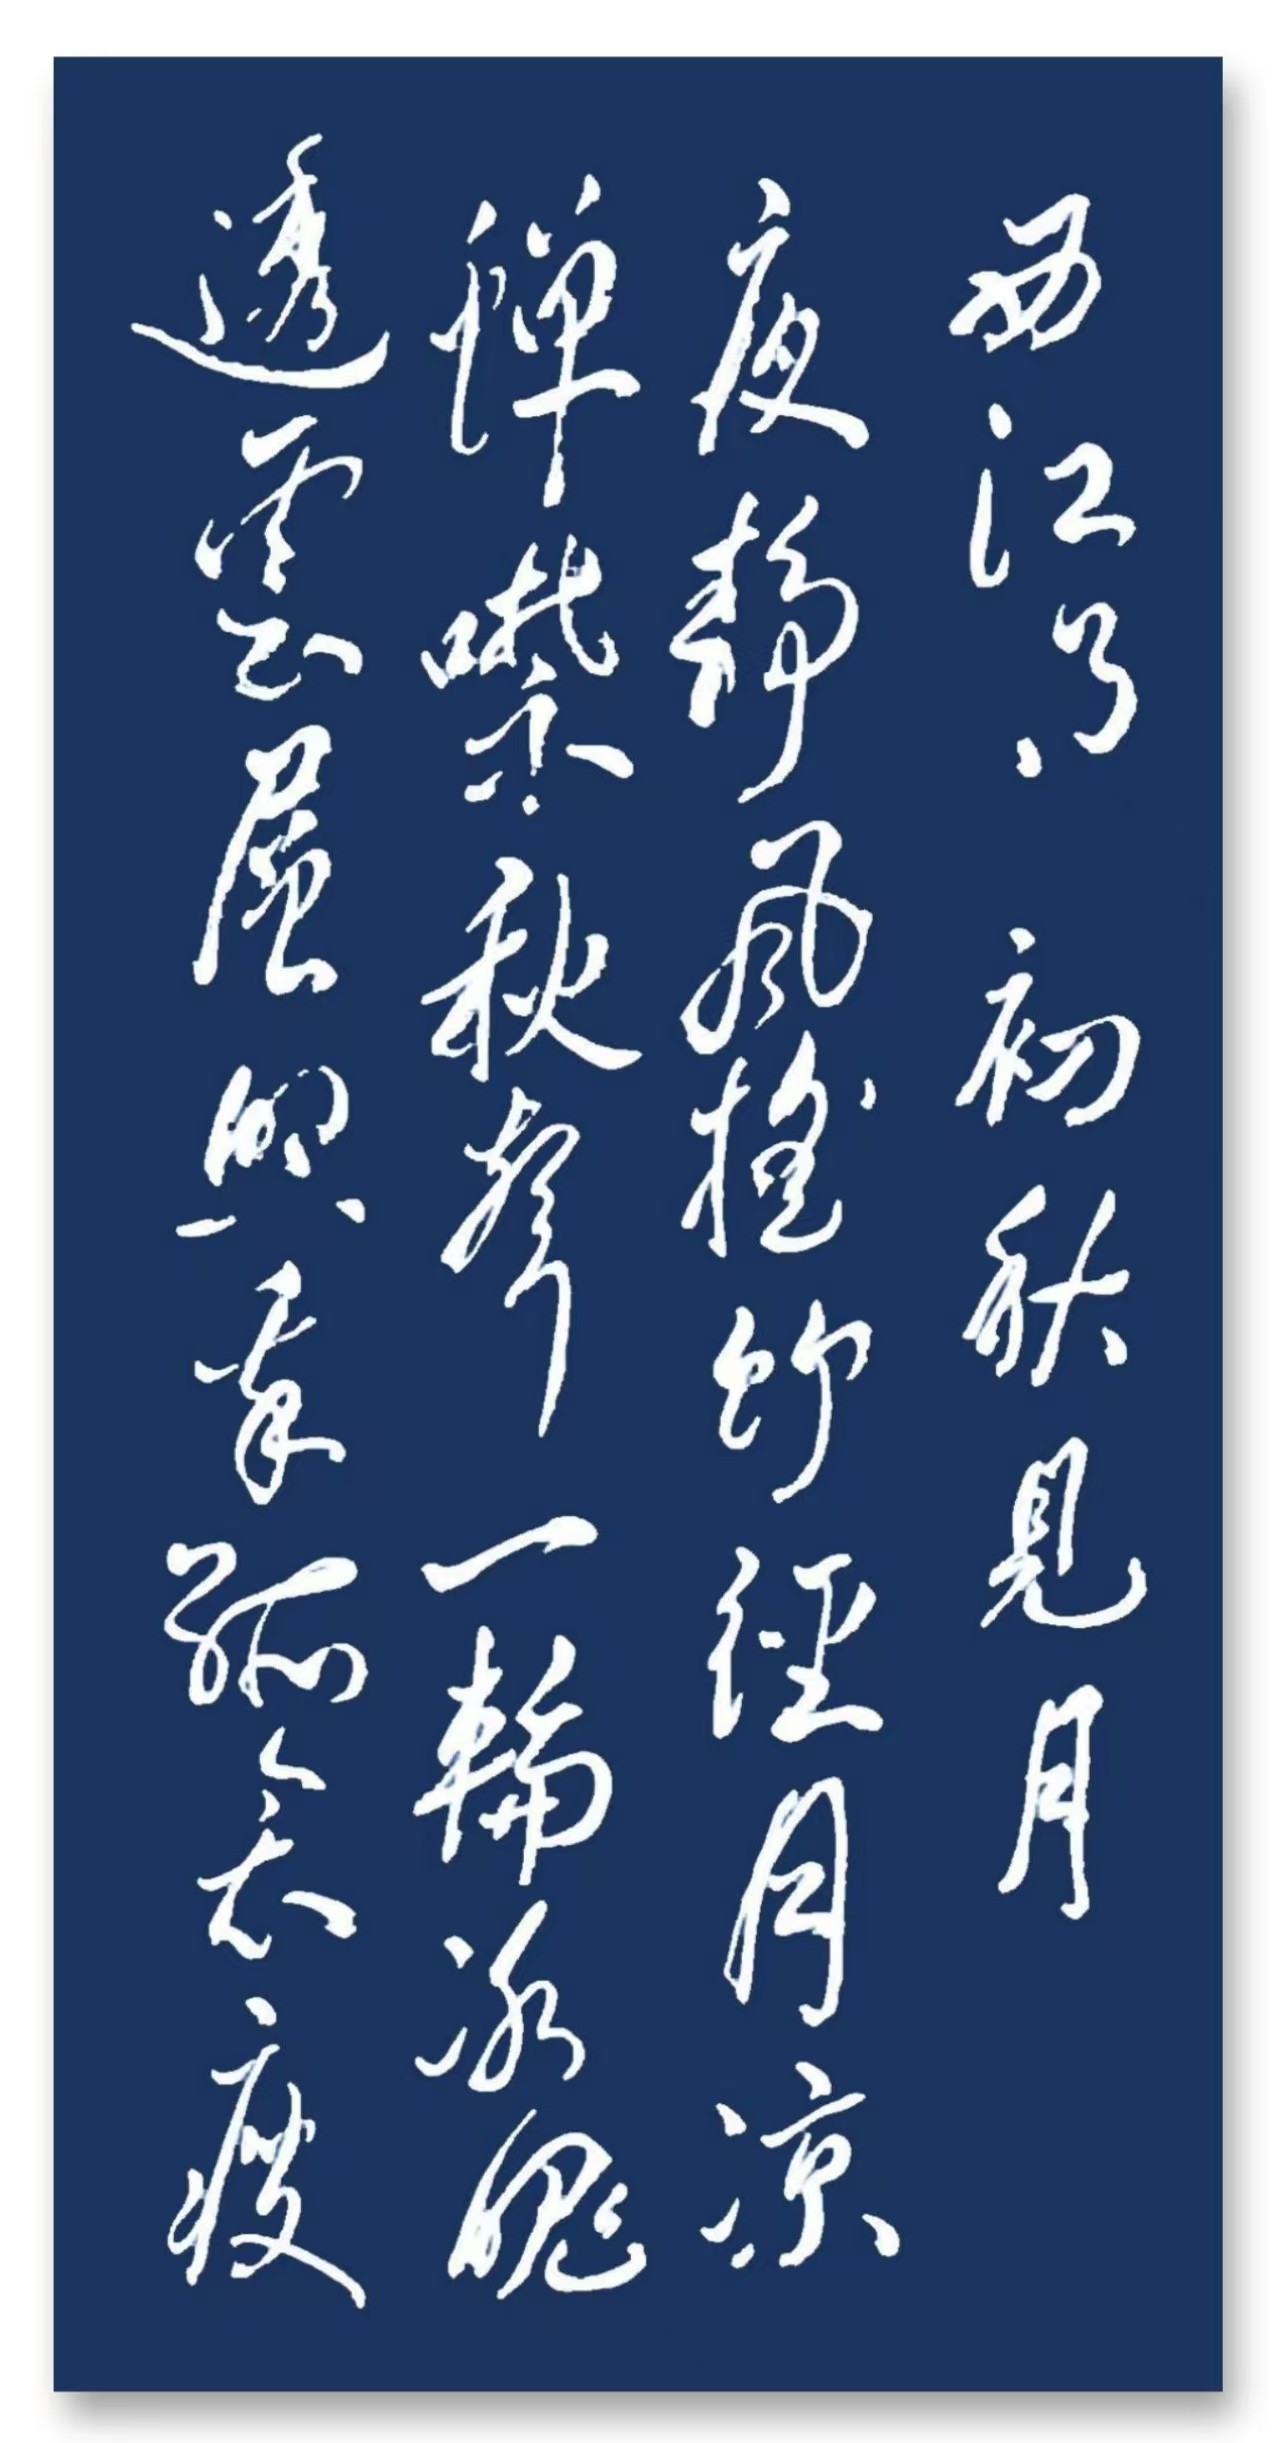 西江月 初秋見月
夜靜風搖竹徑月凉
蟬噤秋聲一輪冰魄
透雲層 孤 瘦